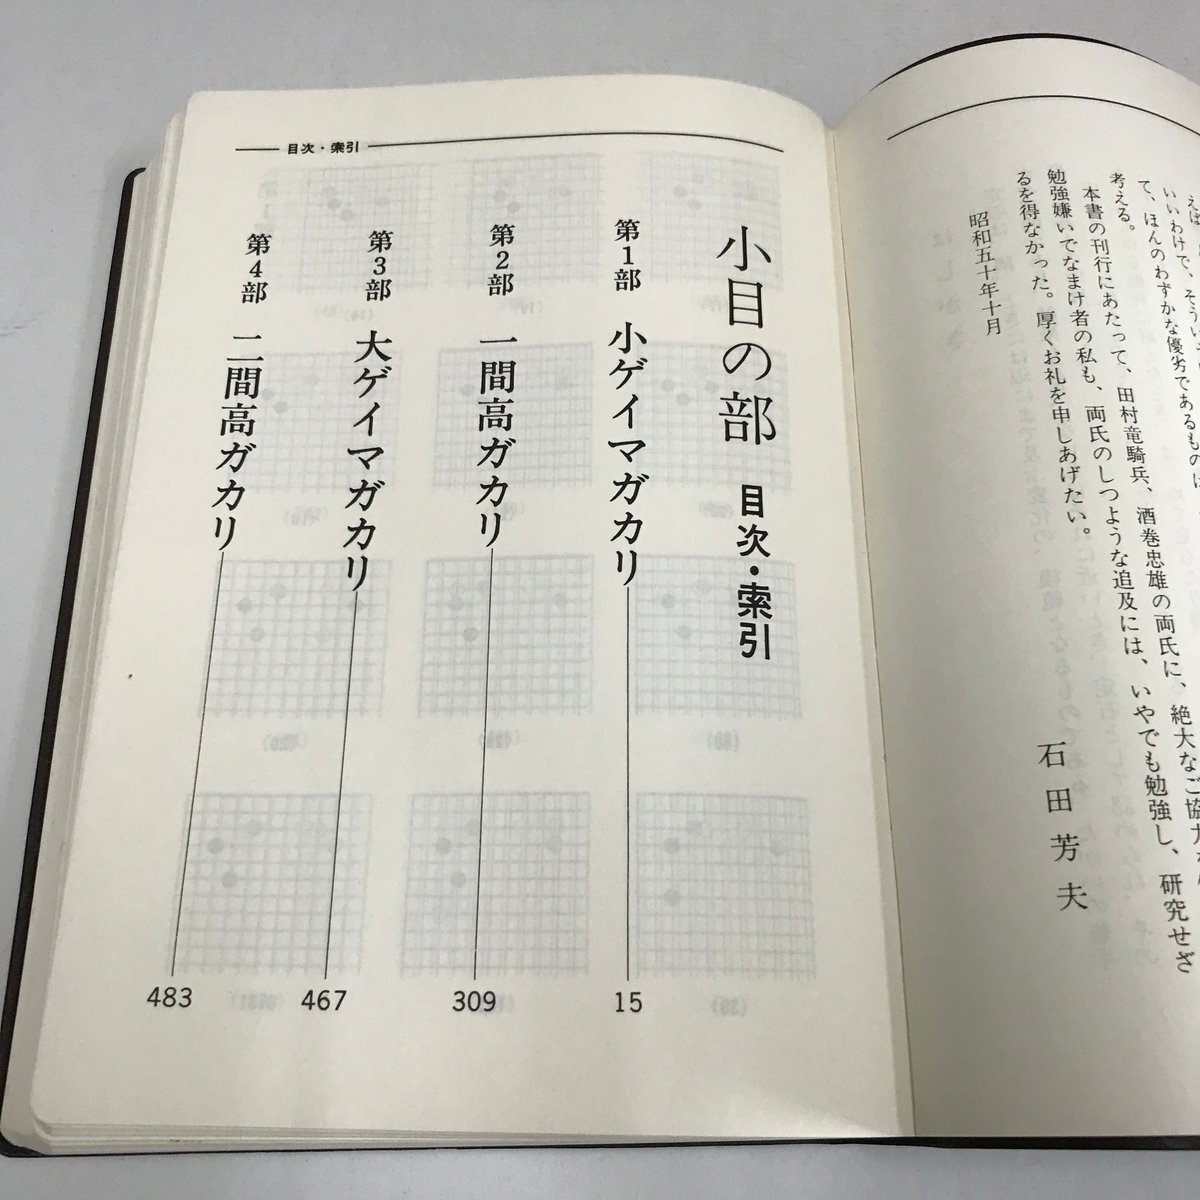 えば
いいわけで、そうい
て、ほんのわずかな優劣であるものは
考える。
本書の刊行にあたって、田村竜騎兵、酒巻忠雄の両氏に、絶大なご協力
勉強嫌いでなまけ者の私も、両氏のしつような追及には、いやでも勉強し、研究せざ
るを得なかった。厚くお礼を申しあげたい。
昭和五十年十月
石田芳夫
目次・索引
小目の部 目次・索引
第1部 小ゲイマガカリ 15
第2部 一間高ガカリ 309
第3部 大ゲイマガカリ 467
第4部 二間高ガカリ 483